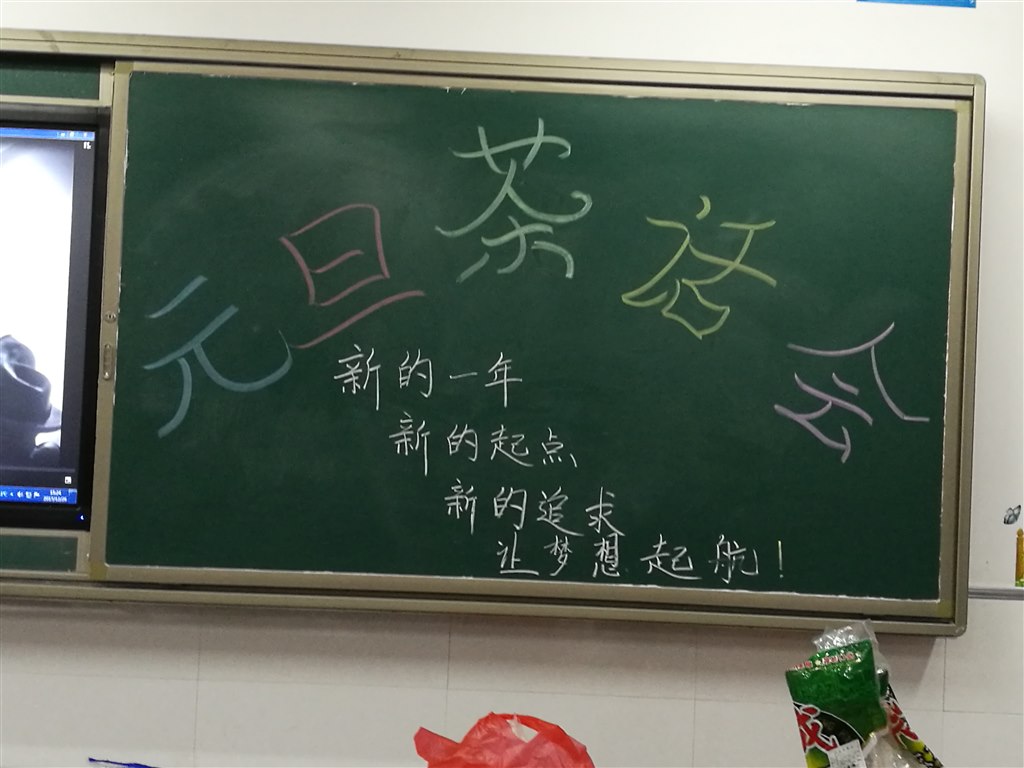 元旦茶话会
新的一年
新的起点
新的追求
让梦想起航!